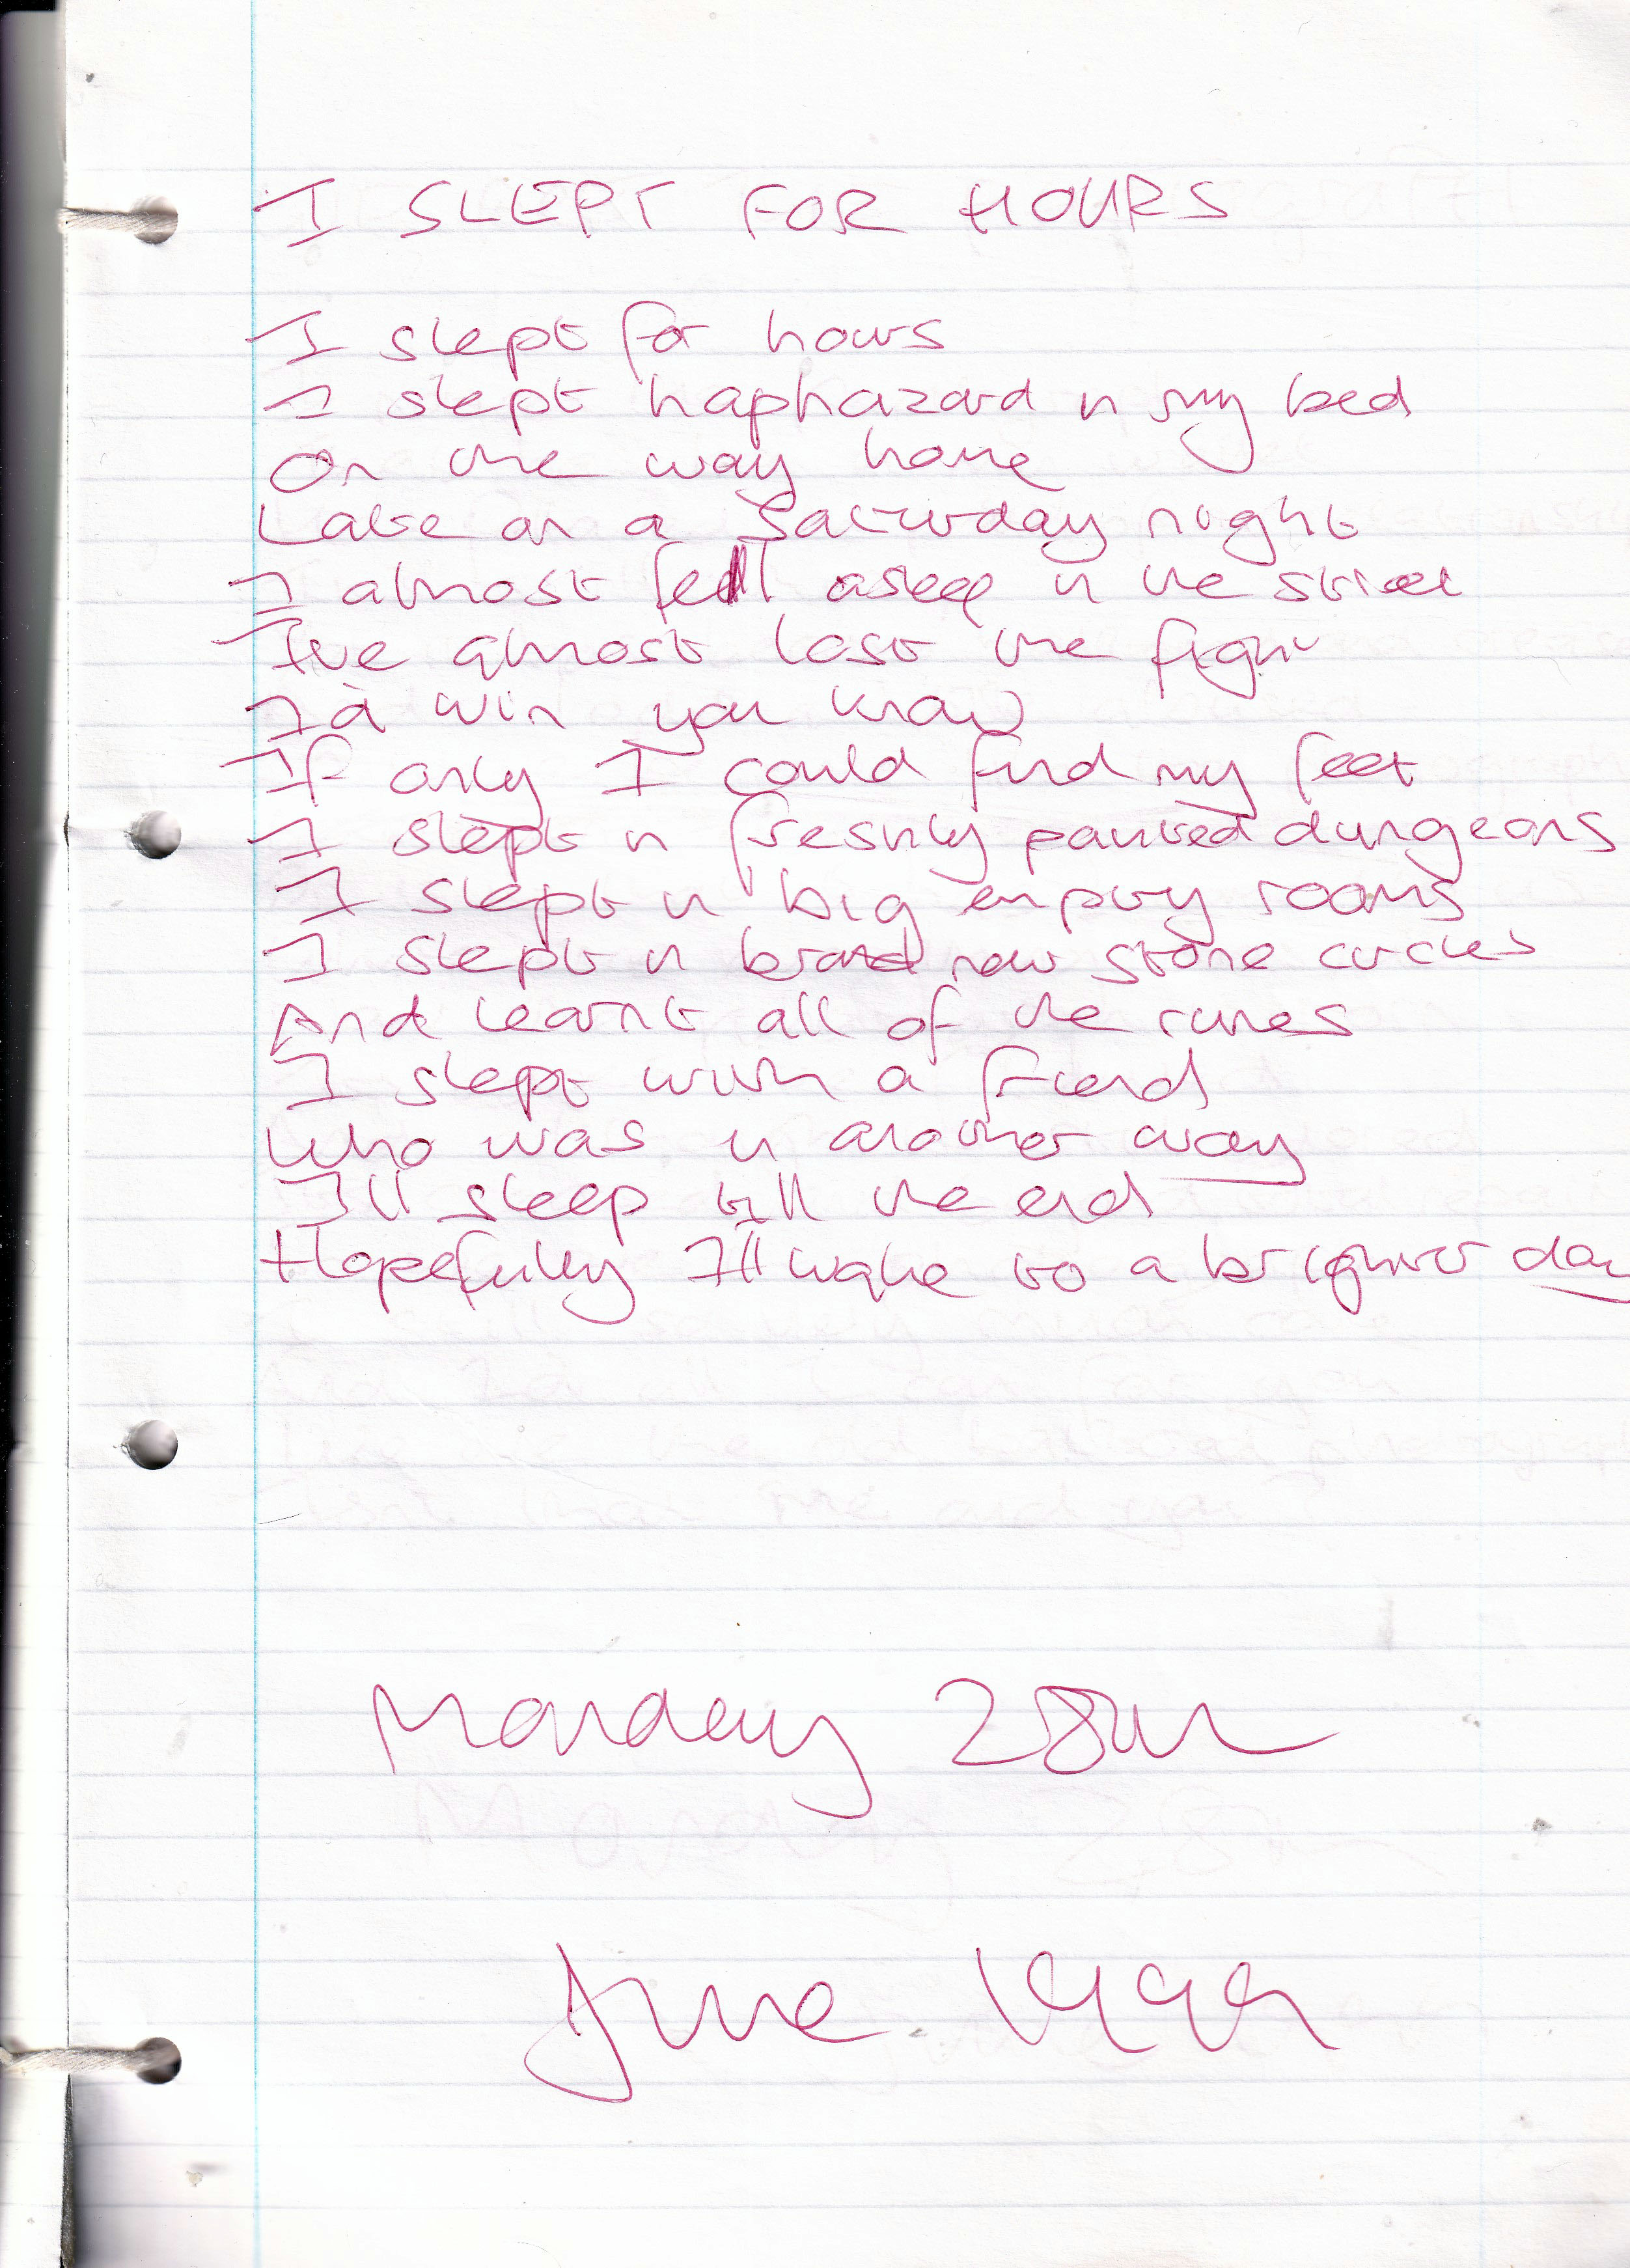 I SLEPT FOR HOURS
I slept for hours
I slept haphazard in my bed
On the way home
Late on a Saturday night
I almost fell asleep in the street
I've almost lost the fight
I'd win you know
If only I could find my feet
I slept in freshly painted dungeons
I slept in big empty rooms
I slept in brand new stone circles
And learnt all of the runes
I slept with a friend
Who was in another way
I'll sleep till the end
Hopefully I'll wake to a brighter day
Monday 28th
June 1999